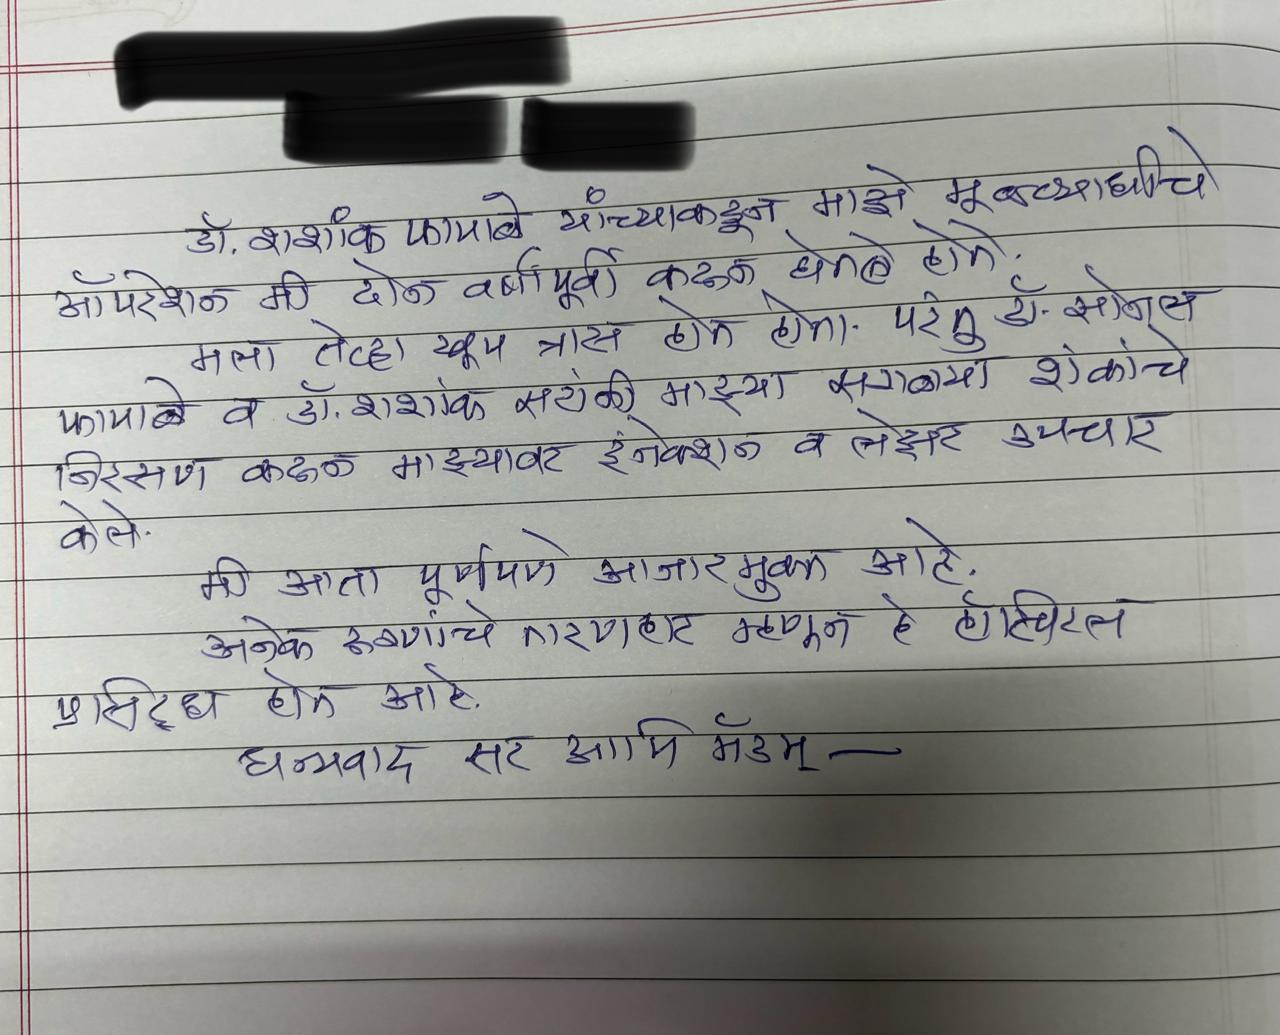 डॉ. शशांक फापाळे यांच्याकडून माझे मूळव्याधीचे
ऑपरेशन मी दोन वर्षापूर्वी करून घेतले होते.
मला तेव्हा खूप त्रास होत होता. परंतु डॉ. सोनल
फापाळे व डॉ. शशांक सरांनी माझ्या सगळ्या शंकांचे
निरसण करून माझ्यावर इंजेक्शन व लेझर उपचार
केले.
मी आता पूर्णपणे आजारमुक्त आहे.
अनेक रुग्णांचे तारणहार म्हणून हे हॉस्पिटल
प्रसिद्ध होत आहे.
धन्यवाद सर आणि मॅडम् —